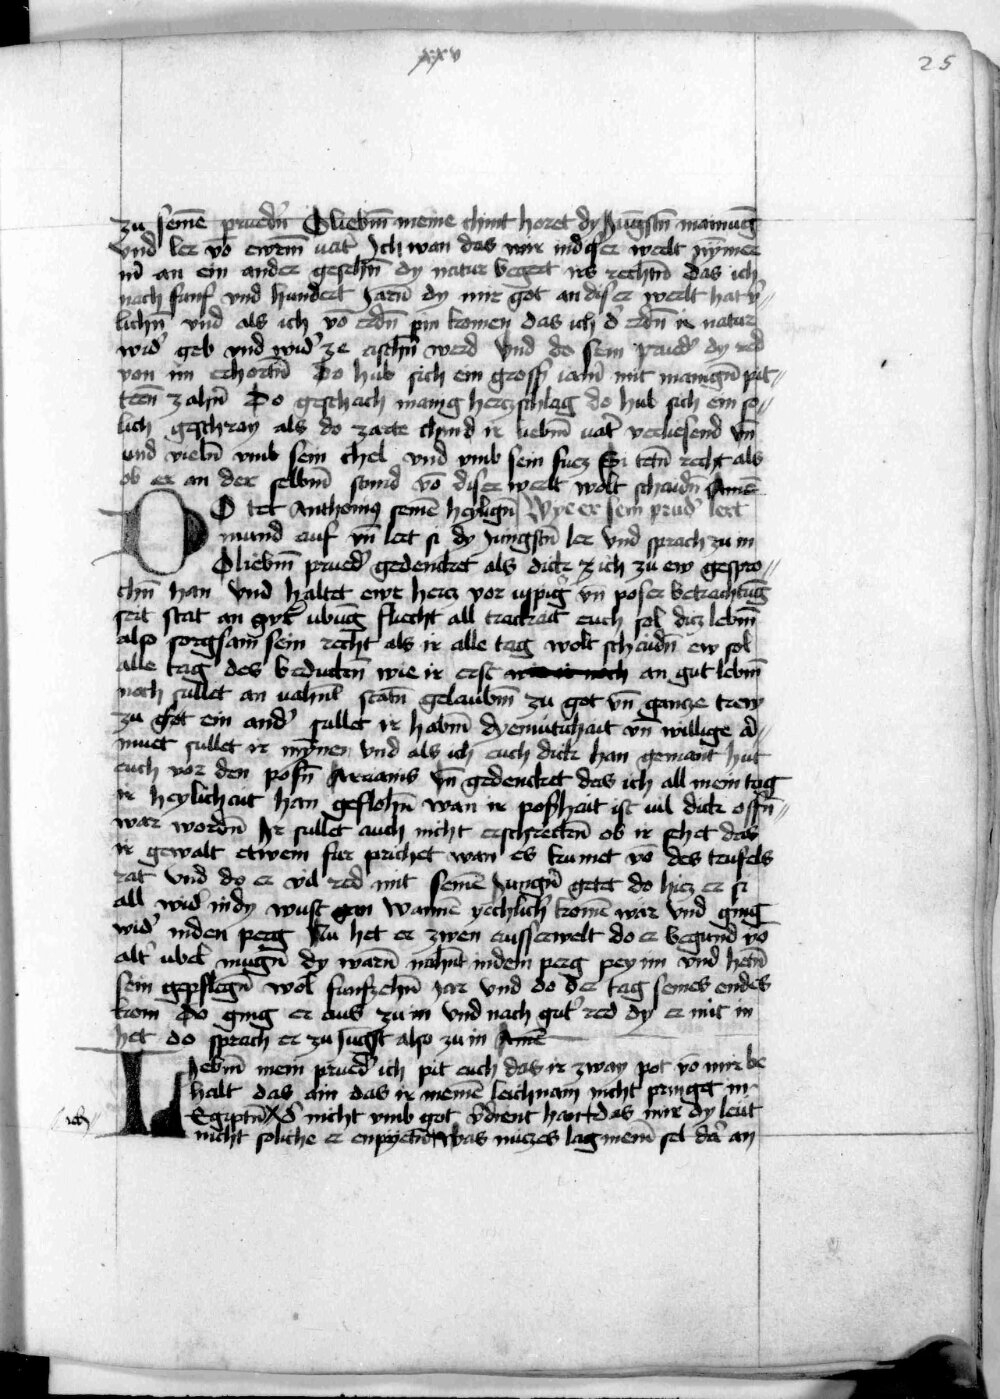 xxv
25
zu seinē pruedn̄ O liebm̄ meine chint horet dy Jungstn̄ manung
vnd ler vō ewrm̄ vat' Ich wan das wir in diser werlt nȳmer
mī an ein ander gesehn̄ dy natur begert irs rechtn̄ das ich
nach funf vnd hundert Jarn̄ dy mir got an diser werlt hat v'//
lichn̄ vnd als ich vō erdn̄ pin komen das ich d' erdn̄ ir natur
wid' geb vnd wid' ze aschn̄ werd Vnd do sein prued' dy red
von im erhortn̄ Do hub sich ein gross' iam' mit manign̄ pit//
tern̄ zahn̄ Do geschach manig hertzschlag do hub sich ein so//
lich geschray als do zarte chind ir liebm̄ vat' verliesend vn̄
und vieln̄ vmb sein chel vnd vmb sein fuez Si tetn̄ recht als
ob er an der selbm̄ stund vō diser werlt wolt schaidn̄ Amē
DO tet Anthonius seinē heylign̄ Wye er sein prud' lert
mund auf vn̄ lert si dy Jungstn̄ ler vnd sprach zu in
O liebm̄ prued' gedencket als dick z ich zu ew gespro//
chn̄ han vnd haltet ewr hertz vor uppig' vn̄ poser betrachtūg
seit stat an gut' ubūg fliecht all trackait euch sol ditz lebm̄
also sorgsam sein recht als ir alle tag wolt schaidn̄ ew sol
alle tag des bedunckn̄ wie ir erst an gut lebm̄
noch sullet an stātn̄ gelaubm̄ zu got vn̄ gantze trew
zu got ein and' sullet ir habm̄ dyemutichait vn̄ willige a'//
muet sullet ir mȳnen vnd als ich euch dick han gemant hut
euch vor den posn̄ Arrianis vn̄ gedencket das ich all mein tag
ir heylichait han geflohn̄ wan ir poshait ist vil dick offn̄//
war wordn̄ Ir sullet auch nicht erschreckn̄ ob ir sehet das
ir gewalt etwem fur prichet wan es kumet vō des teufels
rat Vnd do er vil red mit seinē Jungn̄ getet do hiez er si
all wid' in dy wust gen wannē yechlich' komē wār vnd ging
wid' in den perg Nu het er zwen ausserwelt do er begund vō
alt' ubel mugn̄ dy warn̄ nahnt in dem perg pey im vnd hetn̄
sein gepflegn̄ wol funfzehn̄ Jar Vnd do der tag seines endes
kom Do ging er aus zu in vnd nach gut' red dy er mit in
het do sprach er zu Jungst also zu in Amē
Liebm̄ mein prued' ich pit euch das ir zway pot vō mir be
halt das ain das ir meinē leichnam nicht pringet in
Egiptn̄ X d' nicht vmb got v'dient han das mir dy leut
ich//
nicht solche er enpyetn̄ Was nuczes lag mein sel dar an